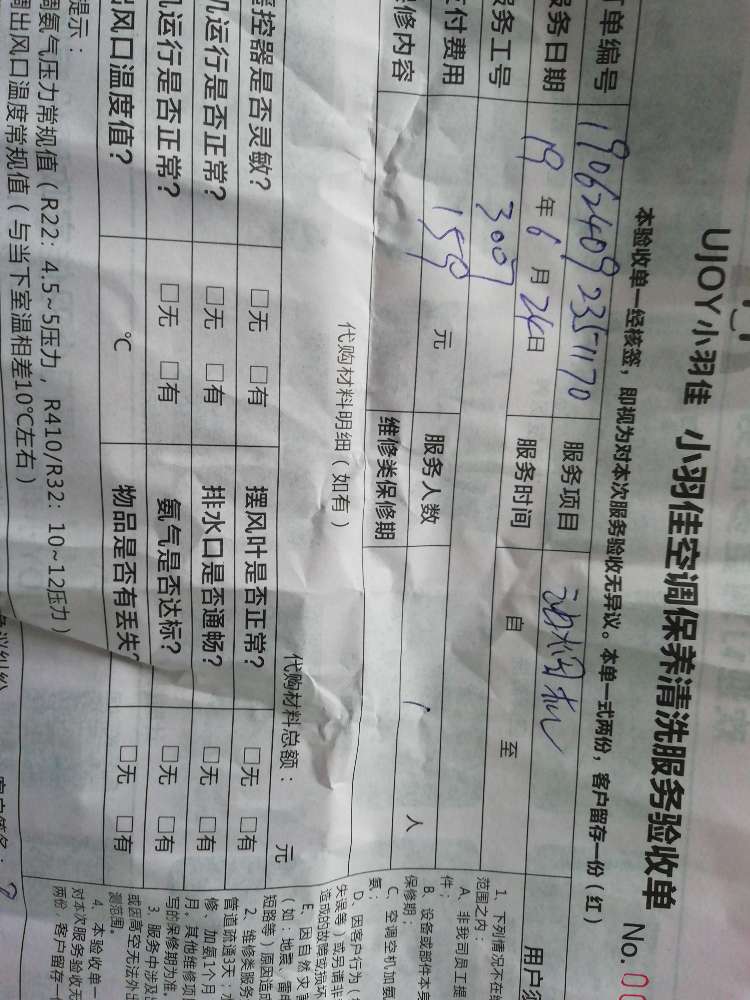 UJOY小羽佳 小羽佳空调保养清洗服务验收单 No.
本验收单一经核签，即视为对本次服务验收无异议。本单一式两份，客户留存一份（红）
订单编号 19062409235770 服务项目 油烟机
服务日期 19 年 6 月 24 日 服务时间 自 至
服务工号 3009
支付费用 159 元 服务人数 1 人
保修内容 维修类保修期
代购材料明细（如有） 代购材料总额： 元
遥控器是否灵敏？ □无 □有 摆风叶是否正常？ □无 □有
机运行是否正常？ □无 □有 排水口是否通畅？ □无 □有
机运行是否正常？ □无 □有 氨气是否达标？ □无 □有
出风口温度值？ ℃ 物品是否有丢失？ □无 □有
提示：
调氨气压力常规值（R22：4.5~5压力，R410/R32：10~12压力）
调出风口温度常规值（与当下室温相差10℃左右）
用户须
1、下列情况不在
范围之内：
A、非我司员工提
件；
B、设备或部件本身
保修期；
C、空调空机加氨
氨；
D、因客户行为（
失误等）或另请非
造成的故障或损坏
E、因自然灾害
（如：地震、雷电
短路等）原因造成
2、维修类服务
管道疏通3天；水
修、加氨1个月
月，其他维修项
写的保修期为准。
3、服务中涉及
或因高空无法外出
测范围。
4、本验收单一
对本次服务验收无
两份，客户留存一